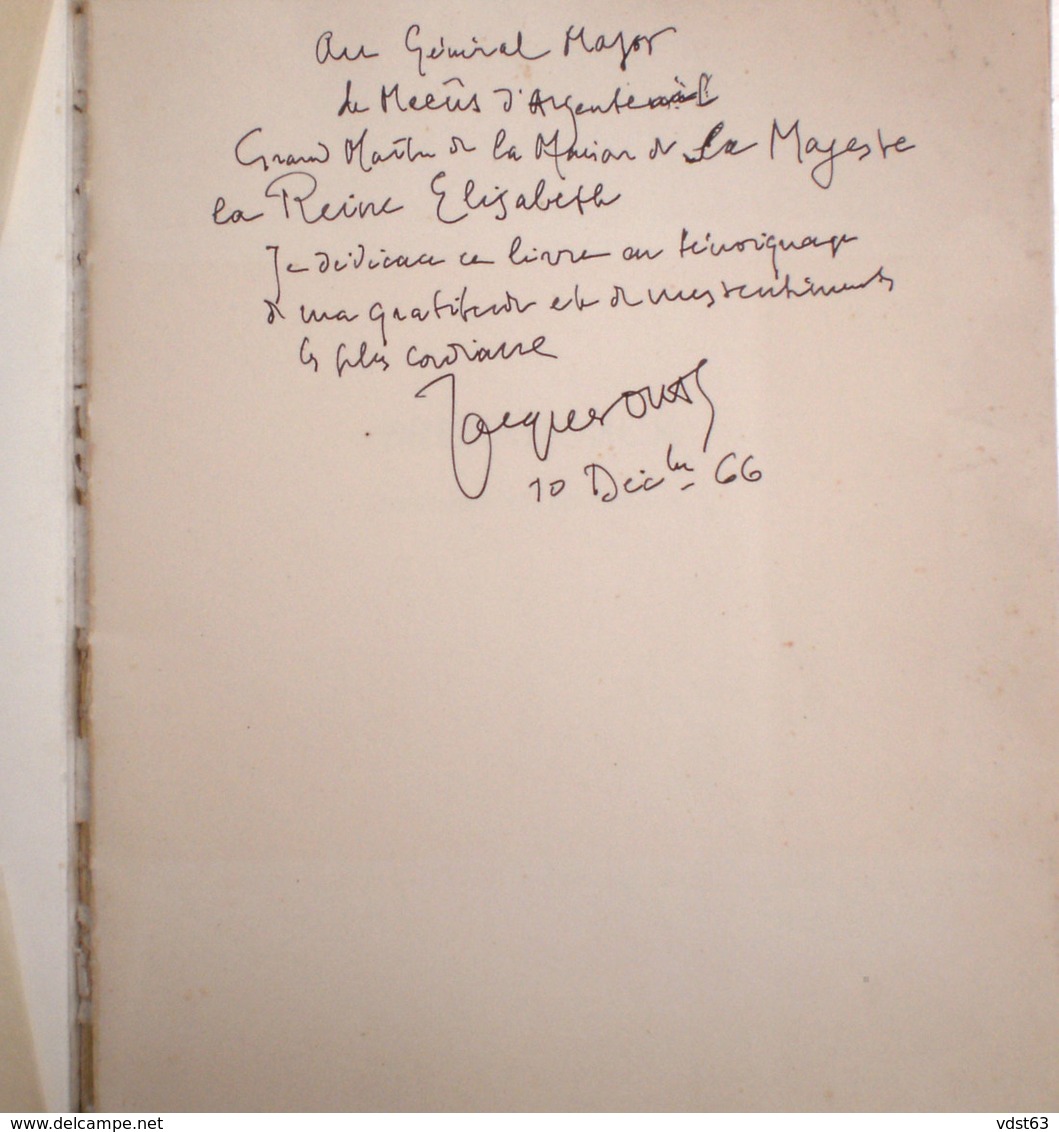 Au Général Major
de Meeûs d'Argenteuil
Grand Maître de la Maison de Sa Majeste
la Reine Elisabeth
Je dédicace ce livre en témoignage
de ma gratitude et de mes sentiments
les plus cordiaux
Jacques
10 Décbre 66
delcampe.net
vdst63